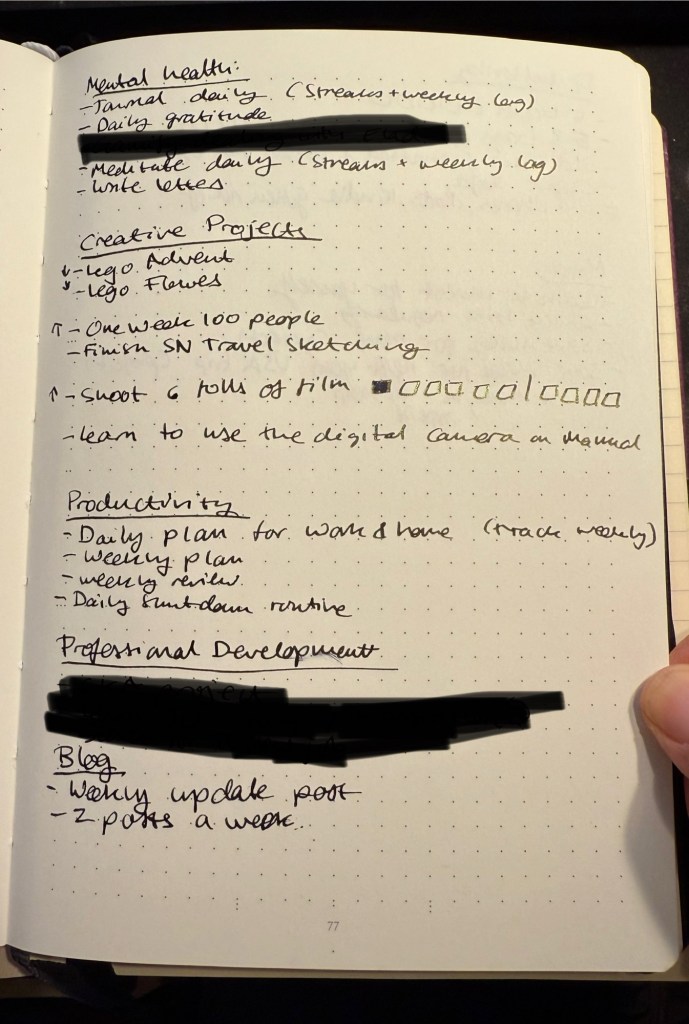 Mental health:
- Journal daily (Streaks + weekly log)
- Daily gratitude
- Meditate daily (Streaks + weekly log)
- Write letters
Creative Projects
↓ - Lego Advent
↓ - Lego Flowers
↑ - One week 100 people
- Finish SN Travel Sketching
↑ - Shoot 6 rolls of film ■□□□□□|□□□□
- Learn to use the digital camera on manual
Productivity
- Daily plan for work & home (track weekly)
- Weekly plan
- weekly review
- Daily shutdown routine
Professional Development
Blog
- Weekly update post
- 2 posts a week
77